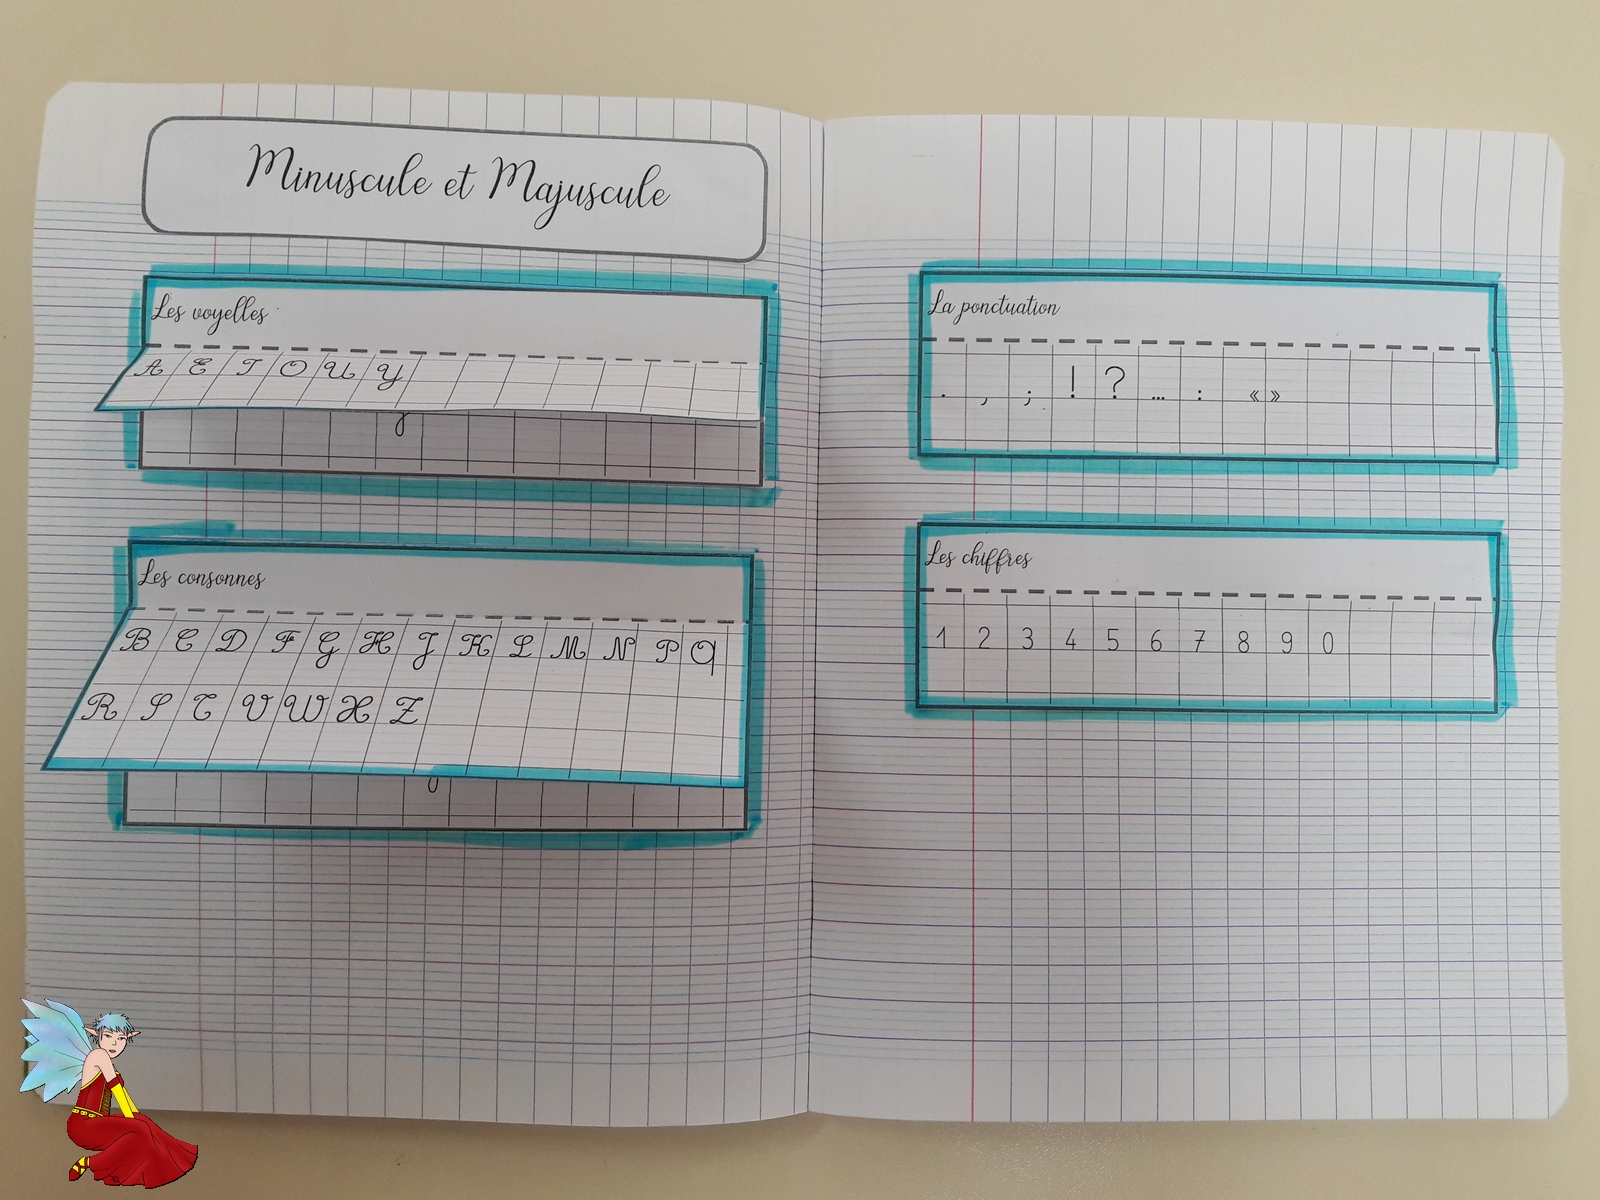 Minuscule et Majuscule
Les voyelles
A E I O U Y
y
Les consonnes
B C D F G H J K L M N P Q
R S T V W X Z
La ponctuation
. , ; ! ? ... : « »
Les chiffres
1 2 3 4 5 6 7 8 9 0